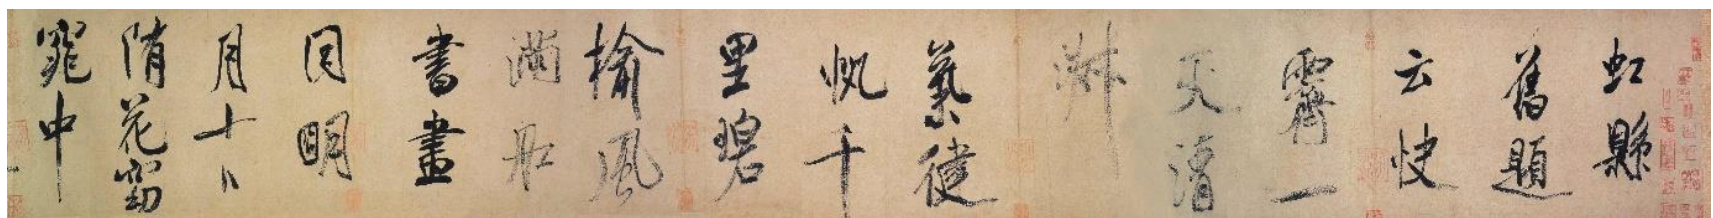 虹縣
舊題
云快
霽一
天清
淑
氣健
帆千
里碧
榆風
滿舡
書畫
同明
月十日
隋花窈
窕中